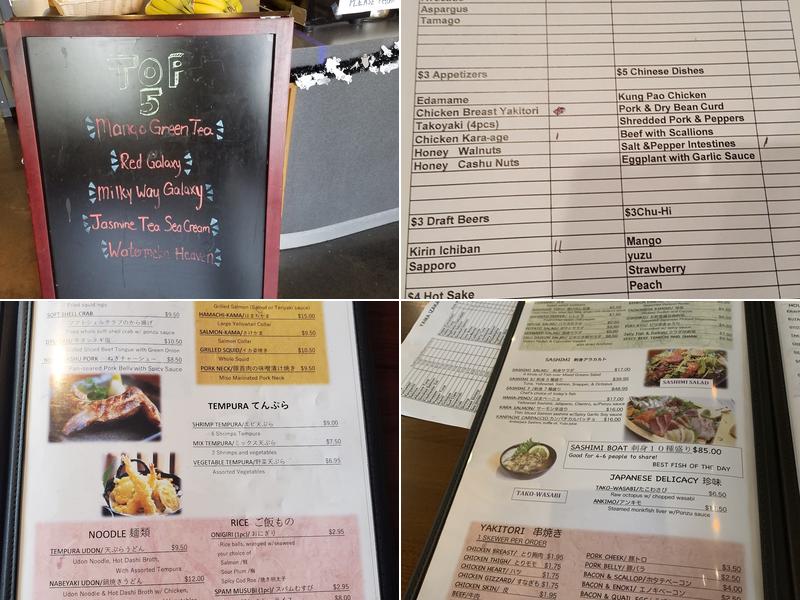 PLEASE
TOP
5
Mango Green Tea
Red Galaxy
Milky Way Galaxy
Jasmine Tea Sea Cream
Watermelon Heaven
Aspargus
Tamago
$3 Appetizers
$5 Chinese Dishes
Edamame
Kung Pao Chicken
Chicken Breast Yakitori
Pork & Dry Bean Curd
Takoyaki (4pcs)
Shredded Pork & Peppers
Chicken Kara-age
Beef with Scallions
Honey Walnuts
Salt &Pepper Intestines
Honey Cashu Nuts
Eggplant with Garlic Sauce
$3 Draft Beers
$3Chu-Hi
Kirin Ichiban
Mango
Sapporo
yuzu
Strawberry
Peach
$4 Hot Sake
Fried squid legs
SOFT SHELL CRAB $9.50
ソフトシェルクラブのから揚げ
Fried whole soft shell crab w/ ponzu sauce
$10.50
Sliced Beef Tongue with Green Onion
PORK ねぎチャーシュー $8.50
Pan-seared Pork Belly with Spicy Sauce
Grilled Salmon (Saikyo or Teriyaki sauce)
HAMACHI-KAMA/はまちかま $15.00
Large Yellowtail Collar
SALMON-KAMA/さけかま $9.50
Salmon Collar
GRILLED SQUID/イカ姿焼き $10.50
Whole Squid
PORK NECK/豚首肉の味噌漬け焼き $9.50
Miso Marinated Pork Neck
TEMPURA てんぷら
SHRIMP TEMPURA/エビ天ぷら $9.00
6 Shrimps Tempura
MIX TEMPURA/ミックス天ぷら $7.50
2 Shrimps and vegetables
VEGETABLE TEMPURA/野菜天ぷら $6.95
Assorted Vegetables
NOODLE 麺類
TEMPURA UDON/天ぷらうどん $9.50
Udon Noodle, Hot Dashi Broth,
With Assorted Tempura
NABEYAKI UDON/鍋焼きうどん $12.00
Udon Noodle & Hot Dashi Broth w/ Chicken,
RICE ご飯もの
ONIGIRI (1pc)/おにぎり $2.95
Rice balls, wrapped w/seaweed
your choice of
Salmon /鮭
Sour Plum /梅
Spicy Cod Roe /焼き明太子
SPAM MUSUBI (1pc)/スパムむすび $2.95
$8.00
SASHIMI 刺身アラカルト
$17.00
$39.95
$17.00
KAMA SALMON/
$16.00
$16.00
SASHIMI SALAD
SASHIMI BOAT 刺身10種盛り $85.00
Good for 4-6 people to share!
BEST FISH OF THE DAY
TAKO-WASABI
JAPANESE DELICACY 珍味
TAKO-WASABI/たこわさび $6.50
Raw octopus w/ chopped wasabi
ANKIMO/アンキモ
Steamed monkfish liver w/Ponzu sauce
YAKITORI 串焼き
1 SKEWER PER ORDER
CHICKEN BREAST/ とり胸肉 $1.95
CHICKEN THIGH/ とりモモ $1.75
CHICKEN HEART/ ハツ $1.75
CHICKEN GIZZARD/ すなぎも $1.75
CHICKEN SKIN/ 皮 $1.95
BEEF/牛肉
PORK CHEEK/ 豚トロ $3.50
PORK BELLY/ 豚バラ $2.50
BACON & SCALLOP/ホタテベーコン $4.00
BACON & ENOKI/ エノキベーコン $2.00
BACON & QUAIL EGG/